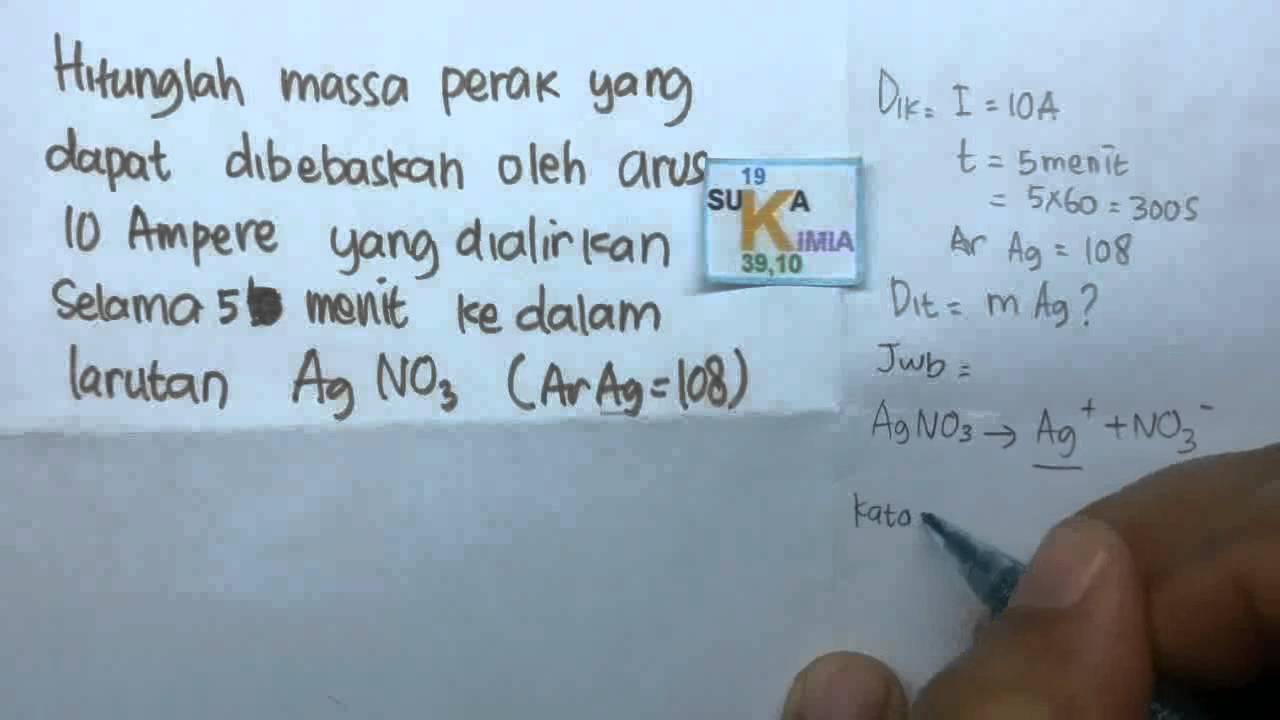 Hitunglah massa perak yang
dapat dibebaskan oleh arus
10 Ampere yang dialirkan
Selama 5 menit ke dalam
larutan AgNO3 (Ar Ag=108)
19
SUKA
KiMIA
39,10
Dik= I = 10A
t = 5 menit
= 5×60 = 300S
Ar Ag = 108
Dit = m Ag?
Jwb =
AgNO3 → Ag⁺ + NO3⁻
Kato